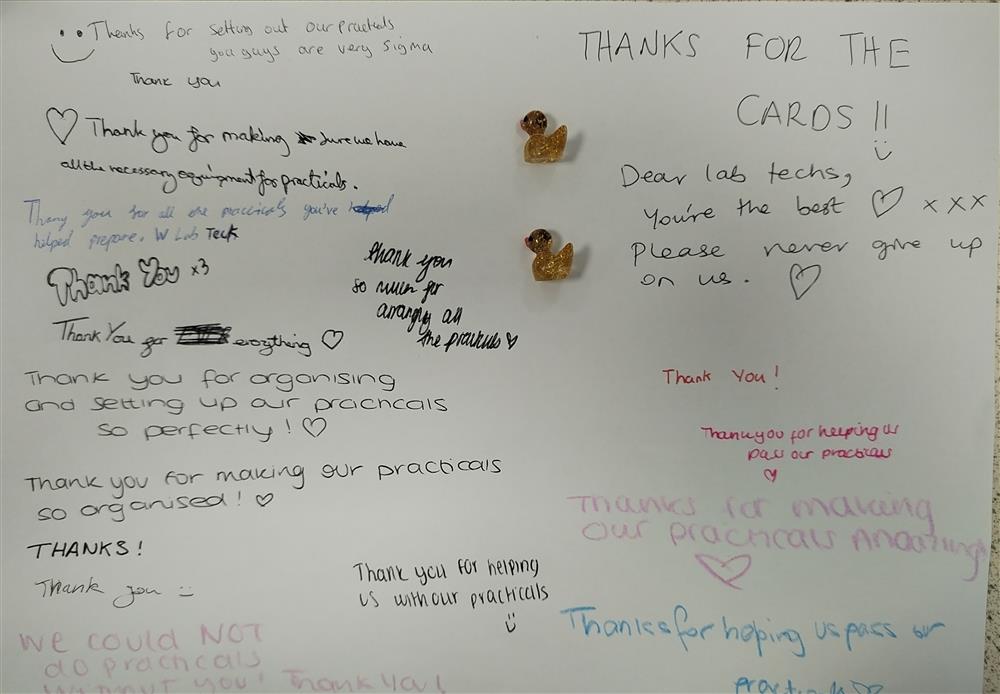 Thanks for setting out our practicals
you guys are very sigma
Thank you
Thank you for making sure we have
all the necessary equipment for practicals.
Thang you for all the practicals you've
helped prepare. W Lab Teck
Thank You x3
Thank You for everything
thank you
so much for
arranging all
the practicals
Thank you for organising
and setting up our practicals
so perfectly!
Thank you for making our practicals
so organised!
THANKS!
Thank you
Thank you for helping
us with our practicals
We could NOT
do practicals
without you! Thank Ya!
THANKS FOR THE
CARDS !!
Dear lab techs,
You're the best xxx
Please never give up
on us.
Thank You!
Thank you for helping us
pass our practicals
Thanks for making
our practicals Amazing
Thanks for helping us pass our
practicals